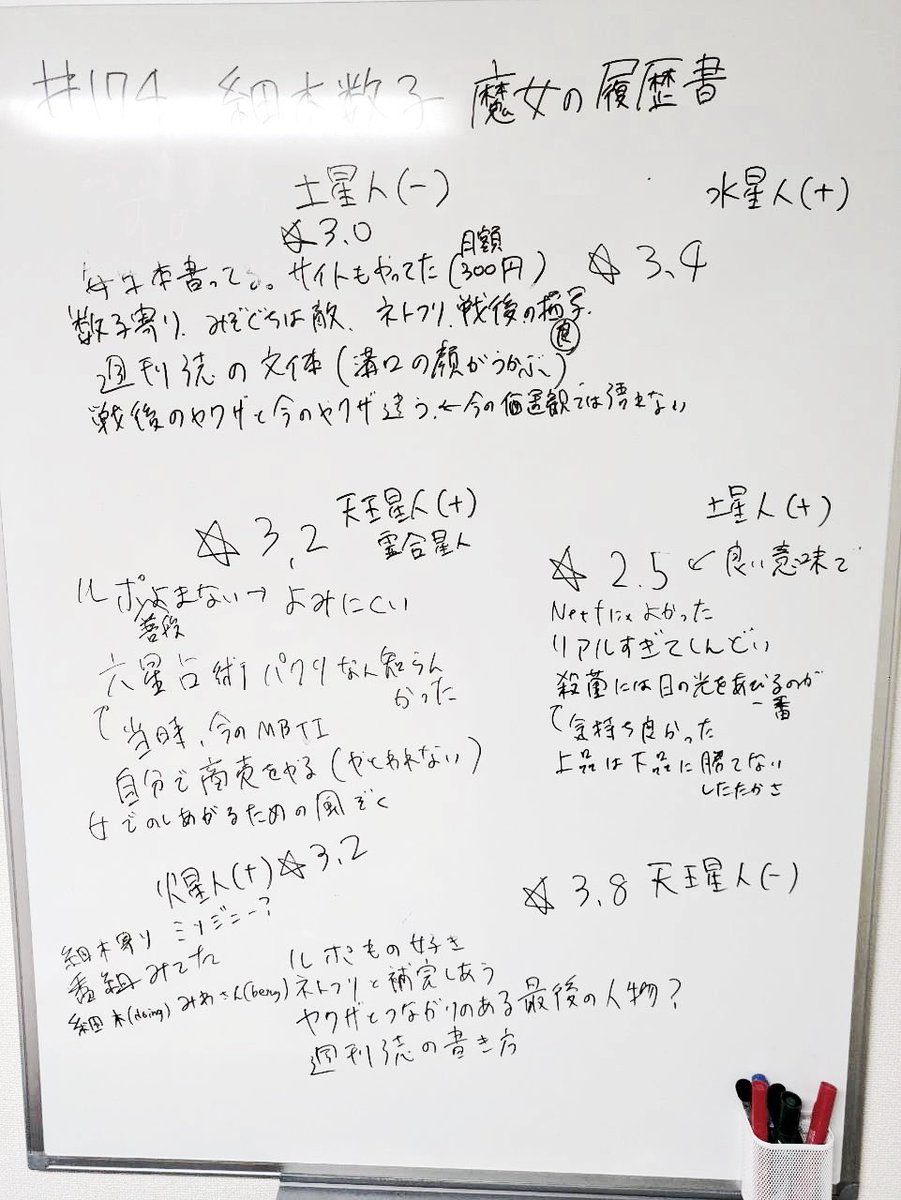 #174 細木数子 魔女の履歴書
土星人(-)
☆3.0
水星人(+)
☆3.4
本書ってる。サイトもやってた(月額300円)
数子寄り、みぞぐちは敵、ネトフリ、戦後の描写良
週刊誌の文体(溝口の顔がうかぶ)
戦後のヤクザと今のヤクザ違う。←今の価値観では語れない
☆3.2 天王星人(+)
霊合星人
ルポよまない→よみにくい
普段
六星占術パクリなん知らんかった
当時、今のMBTI
自分で商売をやる(やとわれない)
女でのしあがるための風ぞく
土星人(+)
☆2.5 ← 良い意味で
Netflixよかった
リアルすぎてしんどい
殺菌には日の光をあびるのが一番
気持ち良かった
上品は下品に勝てない
したたかさ
火星人(+)☆3.2
細木寄り ミソジニー?
番組みてた
細木(doing) みわさん(being)
☆3.8 天王星人(-)
ルポもの好き
ネトフリと補完しあう
ヤクザとつながりのある最後の人物?
週刊誌の書き方